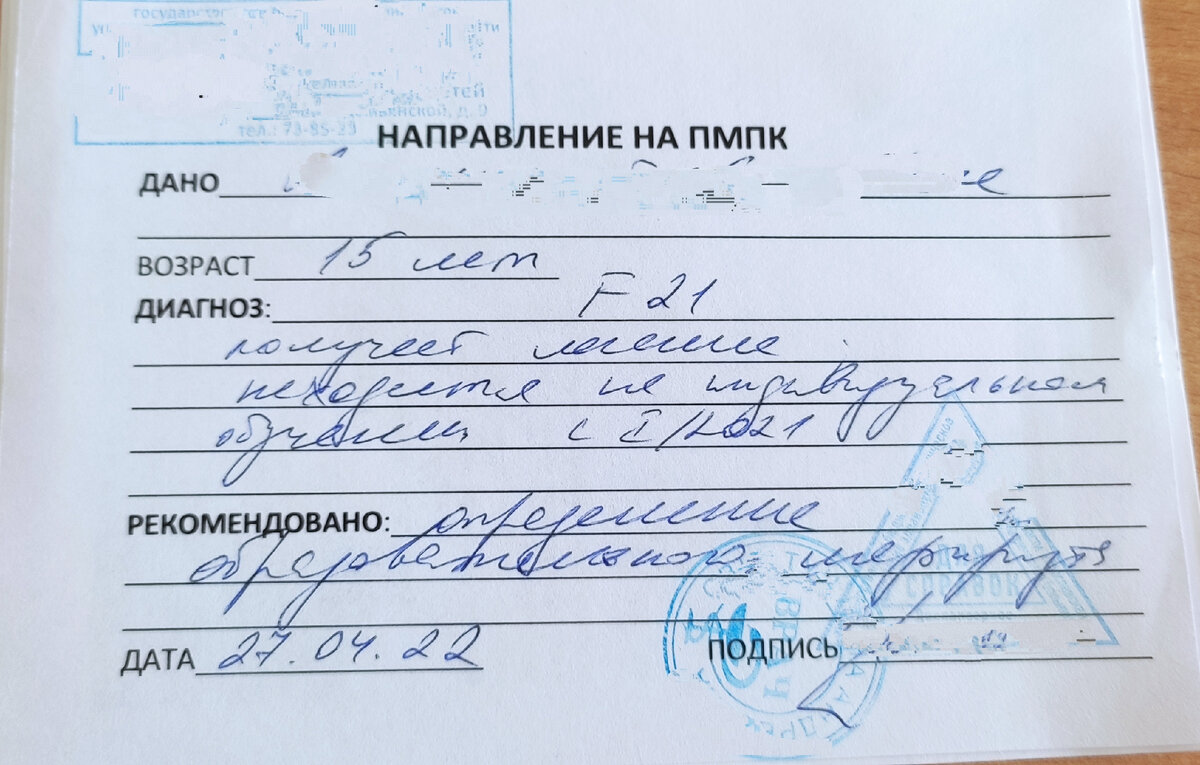 тел.: 73-85-23
НАПРАВЛЕНИЕ НА ПМПК
ДАНО
ВОЗРАСТ 15 лет
ДИАГНОЗ: F 21
получает лечение
находится на индивидуальном
обучении с I/2021
РЕКОМЕНДОВАНО: определение
образовательного маршрута
ДАТА 27.04.22 ПОДПИСЬ
ВРАЧ